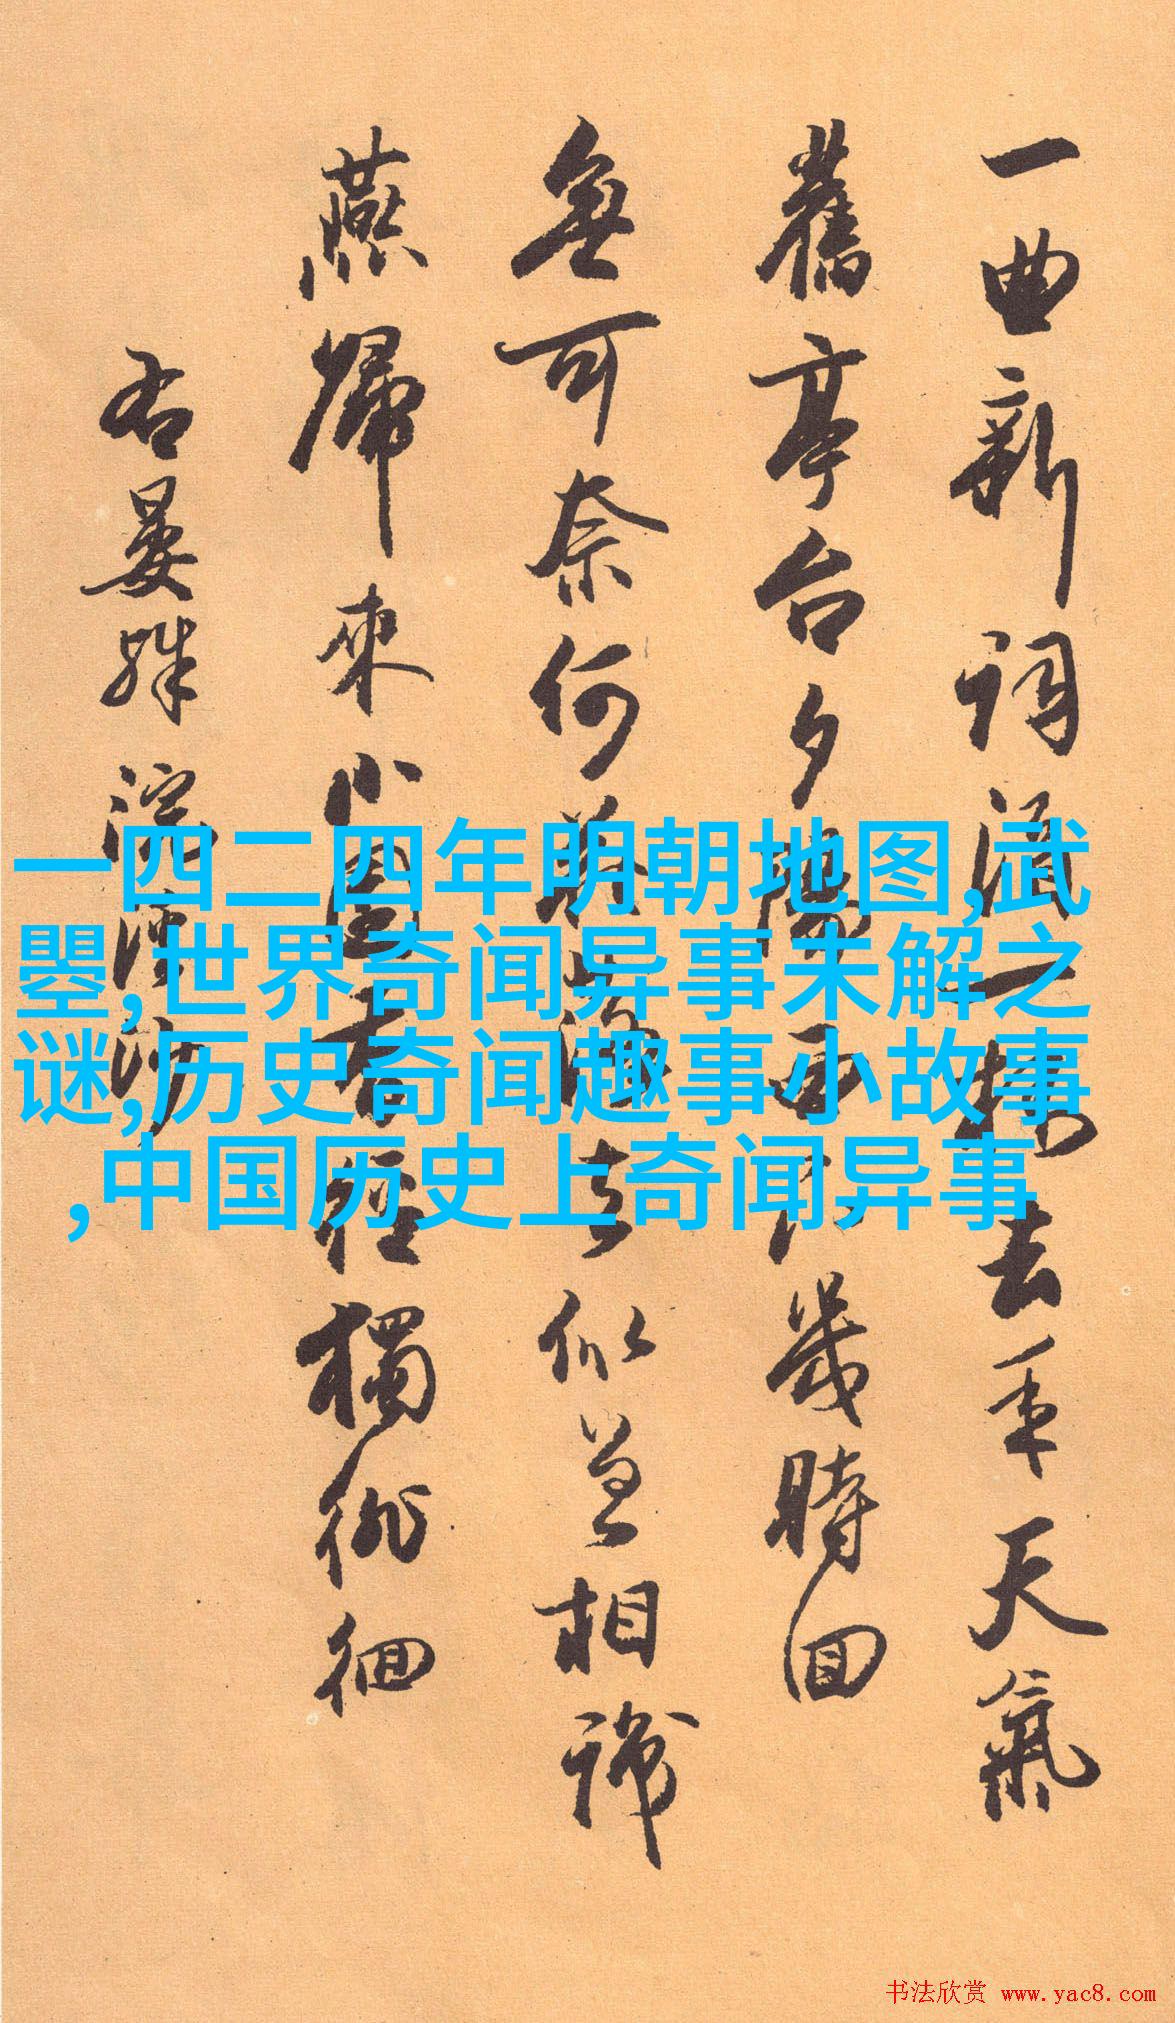 一曲新詞酒一杯去年天氣
舊亭台夕陽西下幾時回
無可奈何花落去似曾相識
燕歸來小園香徑獨徘徊
右晏殊浣溪沙
一四二四年明朝地图,武
曌,世界奇闻异事未解之
谜,历史奇闻趣事小故事
,中国历史上奇闻异事
书法欣赏 www.yac8.com